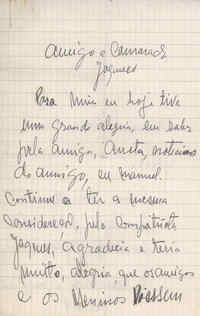 amigo e Camarada
Jaques
Para mim eu hoje tive
uma grande alegria, em saber
pela amiga, Aneta, noticias
do amigo, eu manuel.
Continuo a ter a mesma
consideração, pelo compatriota
Jaques, Agradecia e teria
muitto, alegria, que os amigos
e os Meninos